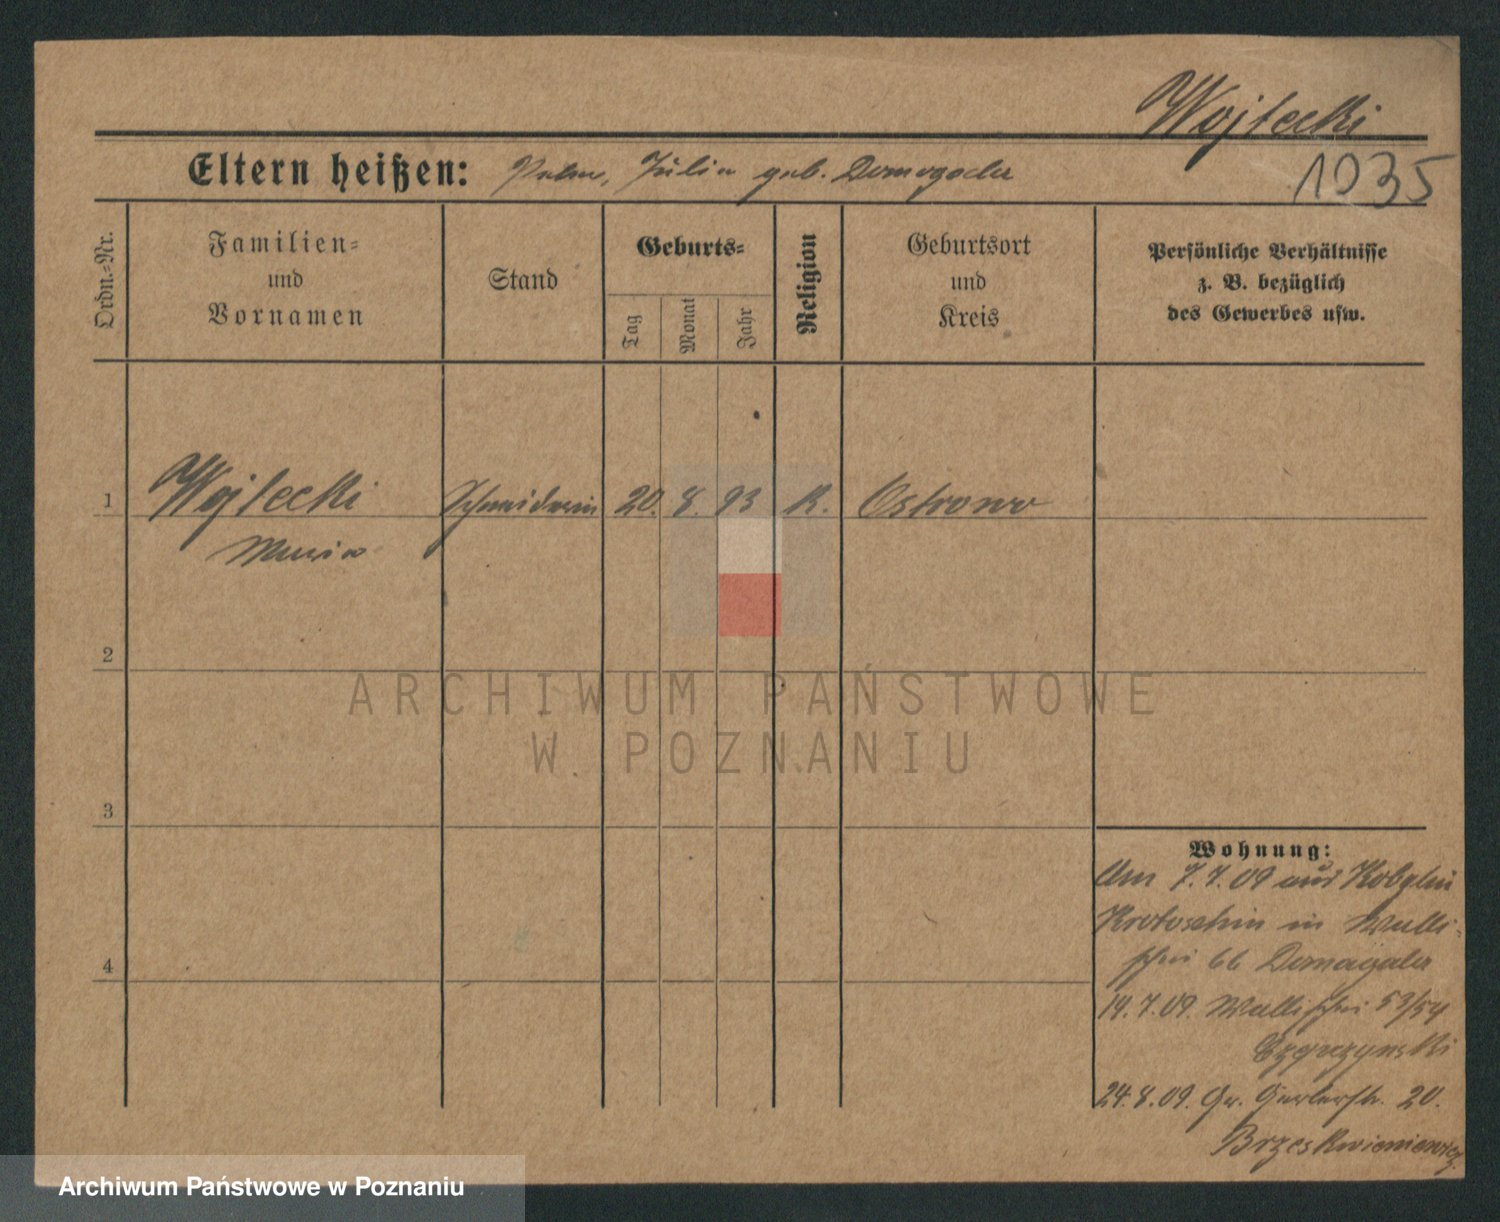 Wojtecki
Eltern heißen: Julia geb. Domagala
1935
Ordn.-Nr.
Familien-
und
Vornamen
Stand
Geburts-
Tag
Monat
Jahr
Religion
Geburtsort
und
Kreis
Persönliche Verhältnisse
z. B. bezüglich
des Gewerbes usw.
1 Wojtecki Schneiderin 20. 8. 93 K. Ostrowo
Maria
2
ARCHIWUM PAŃSTWOWE
W POZNANIU
3
Wohnung:
Am 7.7.09 aus Kobylin
Krotoschin in Walli-
schei 66 Domagala
14.7.09. Wallischei 53/54
24.8.09. Gr. Gerberstr. 20.
Brzeskwieniewicz
4
Archiwum Państwowe w Poznaniu